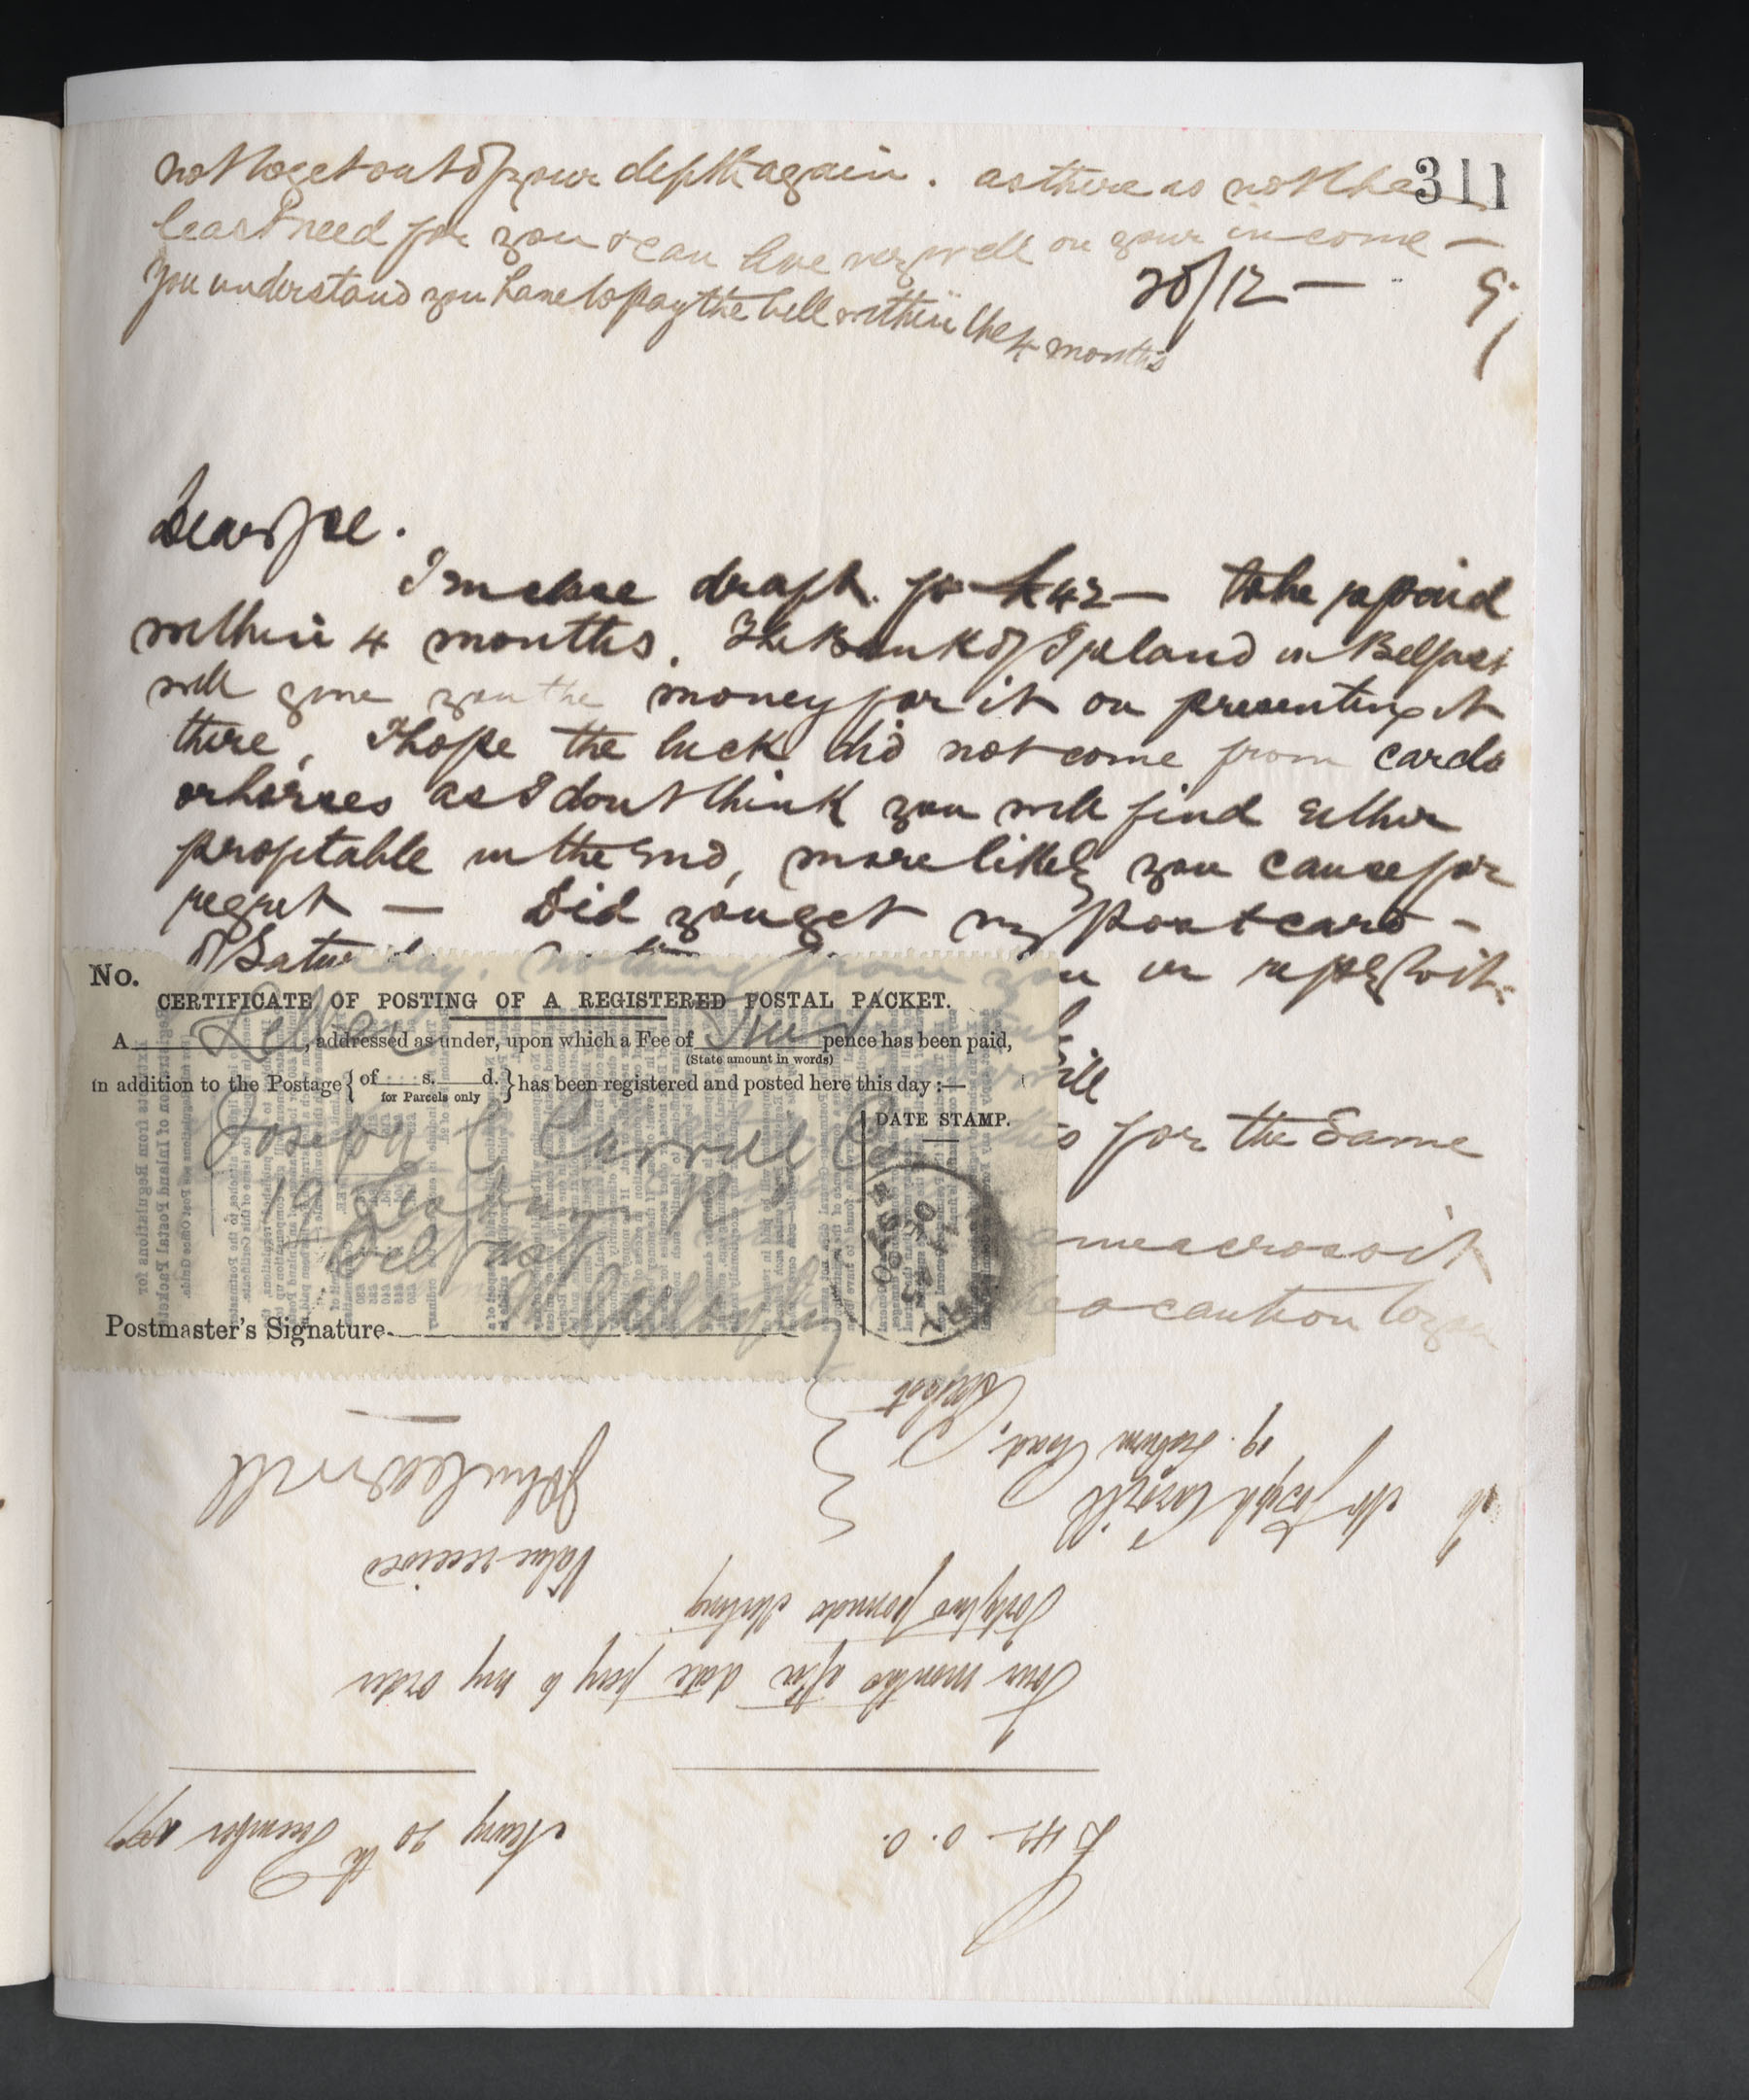 311
not to get out of your depth again. as there is not the
least need for you & can live very well on your income —
you understand you have to pay the bill within the 4 months
20/12 —
Dear Joe.
I enclose draft. for £42 — to be repaid
within 4 months. The Bank of Ireland in Belfast
will give you the money for it on presenting it
there, I hope the luck did not come from cards
or horses as I dont think you will find either
profitable in the end, more likely you cause for
regret — Did you get my post card —
of Saturday. nothing from you in reply to it.
No.
CERTIFICATE OF POSTING OF A REGISTERED POSTAL PACKET.
A Letter, addressed as under, upon which a Fee of Two pence has been paid,
(State amount in words)
in addition to the Postage { of s. d. } has been registered and posted here this day :—
for Parcels only
bill
for the same
Joseph C Carvill
DATE STAMP.
19 Lisburn Rd
Belfast
across it
a caution to you
Postmaster's Signature
£42 - 0. 0.
Newry 20th December 1897
Four months after date pay to my order
Forty two pounds sterling
Value received
To Mr Joseph Carvill
19. Lisburn Road,
Belfast
John Carvill